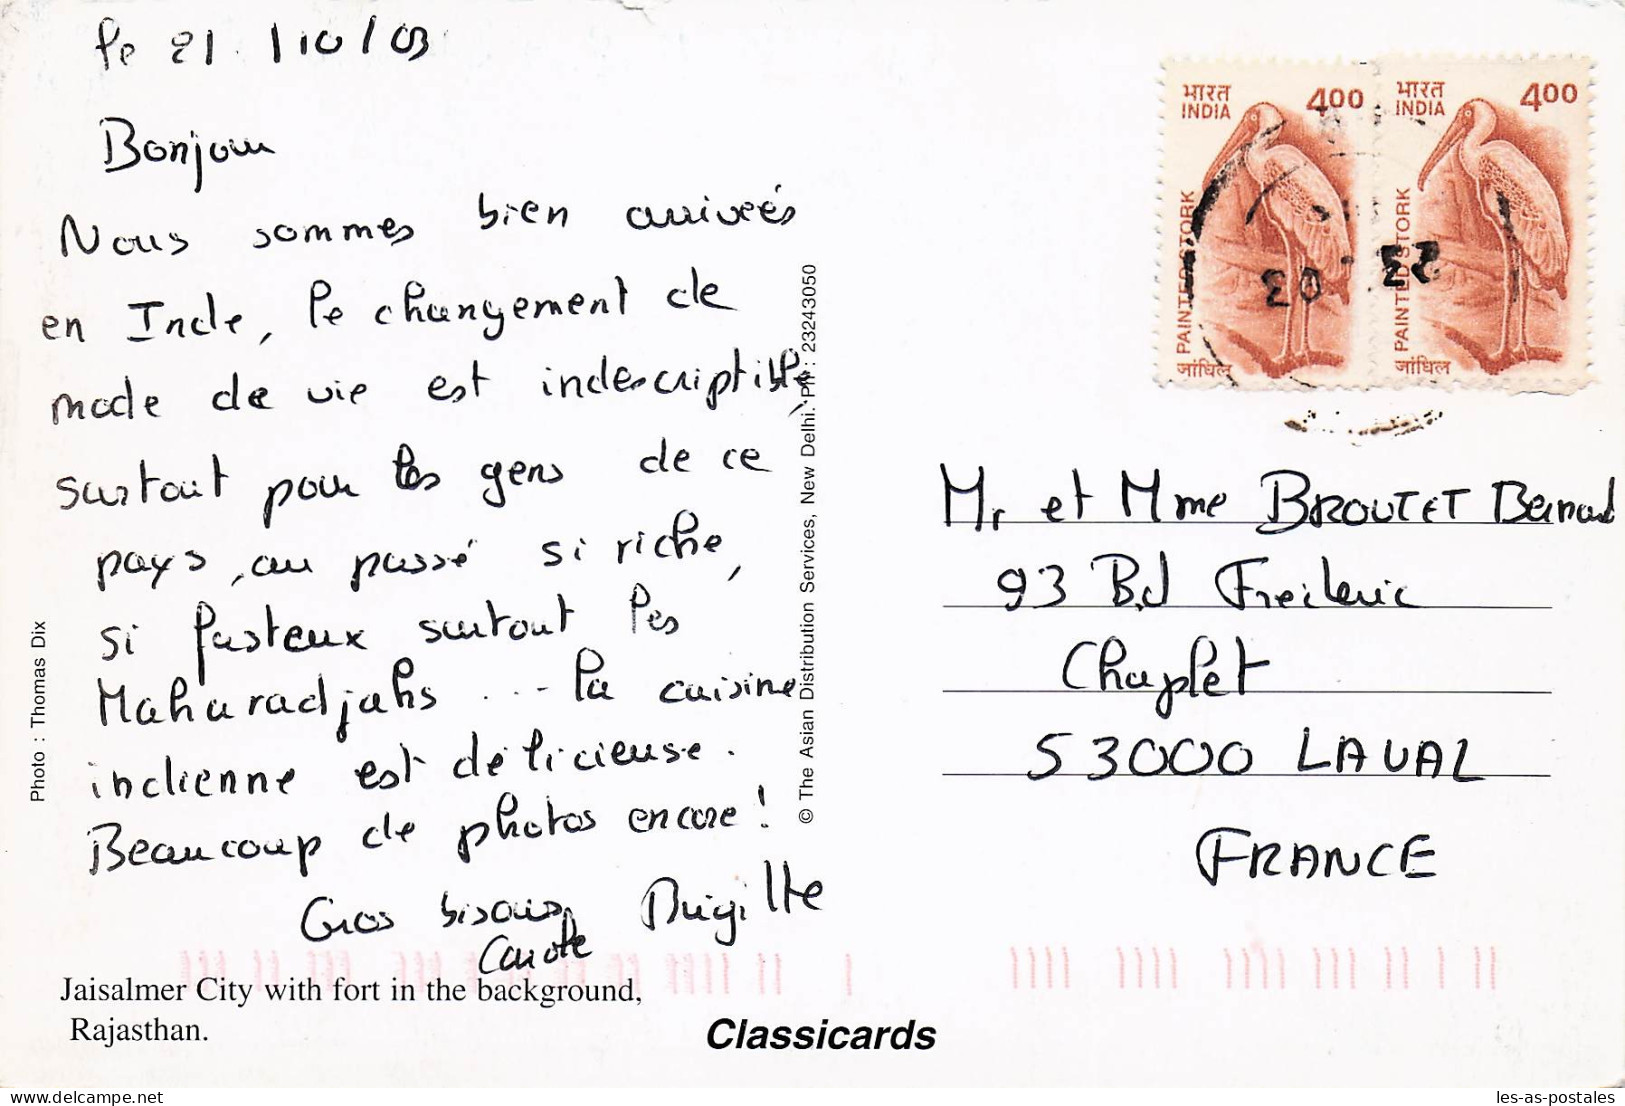 le 21 /10/03
Bonjour
Nous sommes bien arrivées
en Inde, le changement de
mode de vie est indescriptible,
surtout pour les gens de ce
pays, au passé si riche,
si fasteux surtout les
Maharadjahs ... la cuisine
indienne est délicieuse.
Beaucoup de photos encore!
Gros bisous, Brigitte
Carole
Photo : Thomas Dix
Jaisalmer City with fort in the background,
Rajasthan.
Classicards
© The Asian Distribution Services, New Delhi. PH: 23243050
भारत
INDIA
400
PAINTED STORK
जांघिल
भारत
INDIA
400
PAINTED STORK
जांघिल
23
03
Mr et Mme BROUTET Bernard
93 Bd Frederic
Chaplet
53000 LAVAL
FRANCE
delcampe.net
les-as-postales